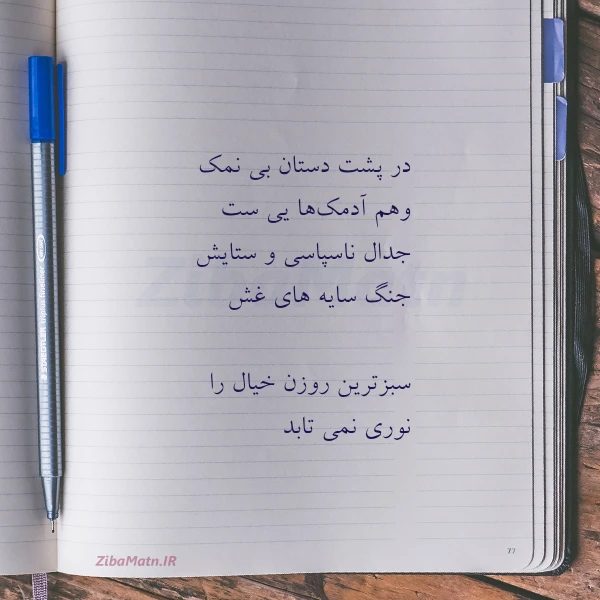 در پشت دستان بی نمک
وهم آدمک‌ها یی ست
جدال ناسپاسی و ستایش
جنگ سایه های غش
سبزترین روزن خیال را
نوری نمی تابد
ZibaMatn.IR
77